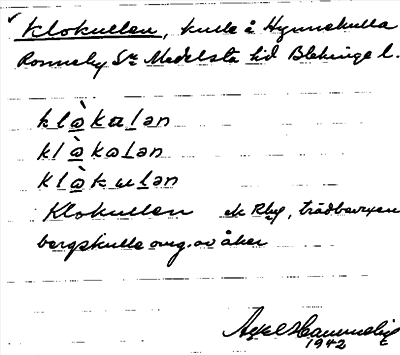 Klokullen, kulle å Hynnekulla
Ronneby Sn Medelsta hd Blekinge l.
klàkalən
klàkalən
klàkulən
Klokullen ek Rby, trädbevuxen
bergskulle omg. av åker
Axel
1942